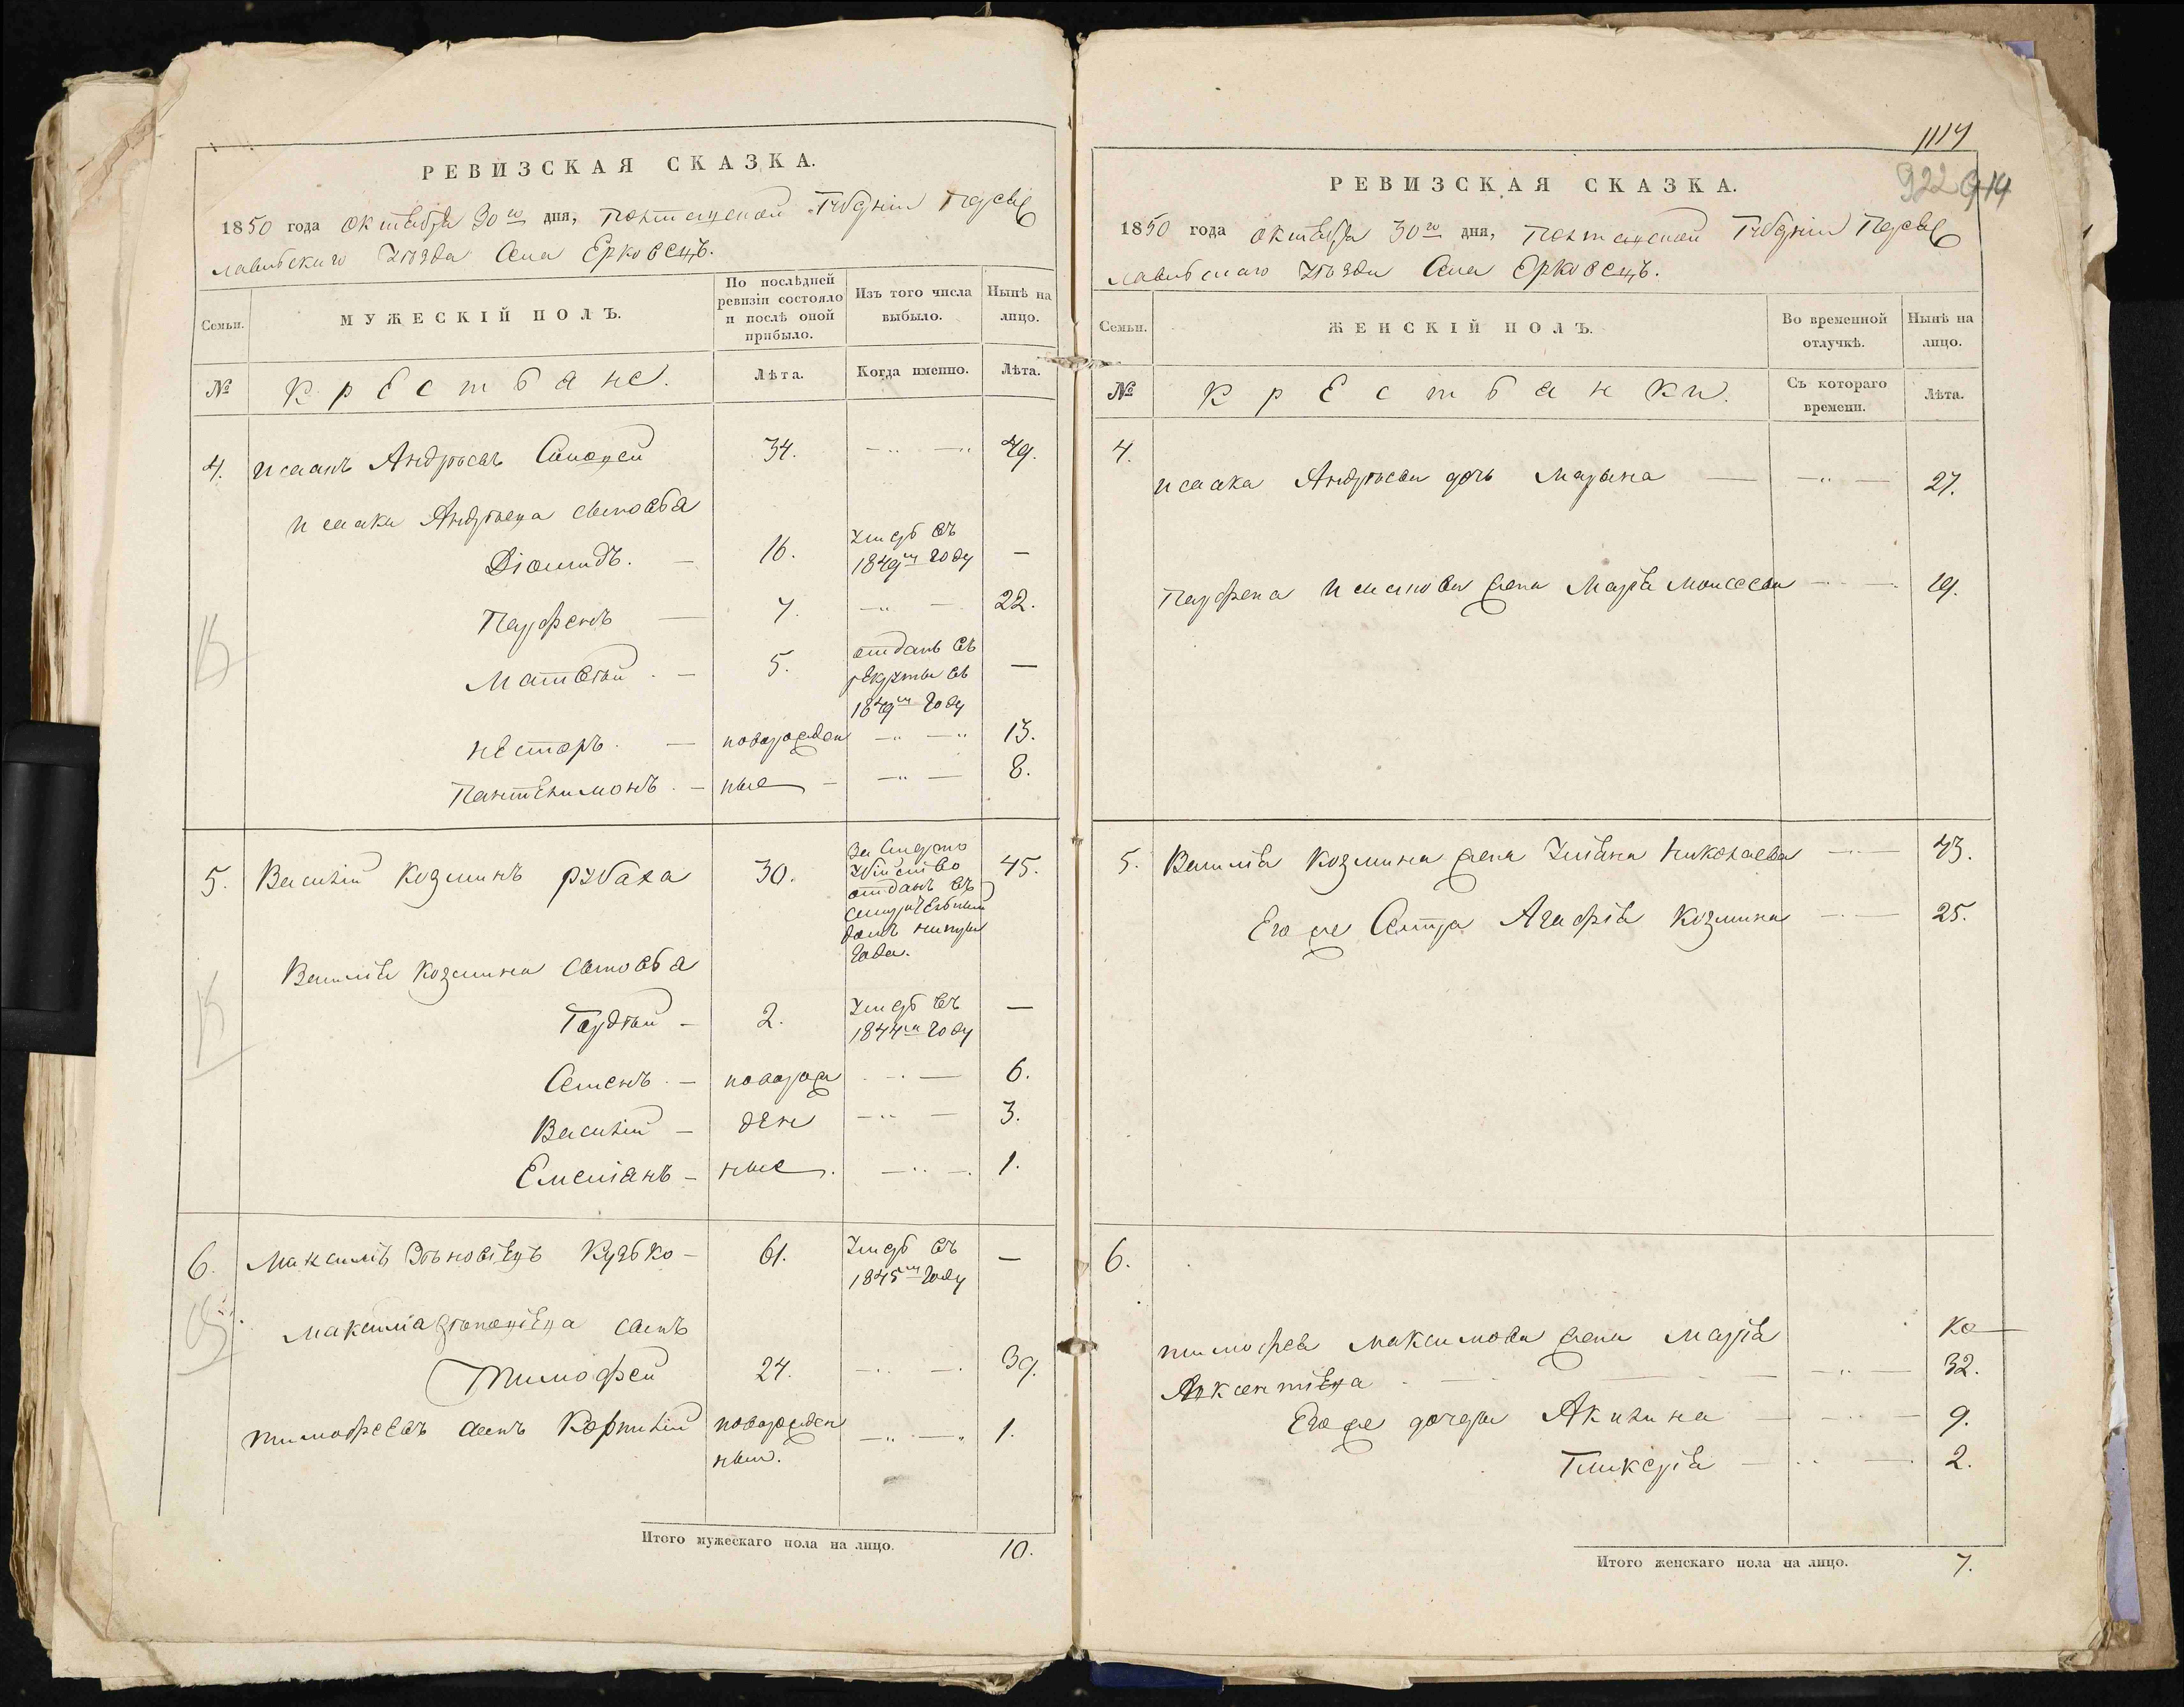 РЕВИЗСКАЯ СКАЗКА.
1850 года октября 30го дня, Полтавской Губерніи Переяс
лавского уѣзда Села Ерковецъ.
Семьи.
МУЖЕСКІЙ ПОЛЪ.
По послѣдней ревизіи состояло и послѣ оной прибыло.
Изъ того числа выбыло.
Нынѣ на лицо.
№
Крестьяне.
Лѣта.
Когда именно.
Лѣта.
4. Исаакъ Андреевъ 34. 49.
Исаака Андреева сыновья
Діомидъ. 16. умеръ въ 1849м году —
Парфенъ 7. 22.
Матвѣй 5. отданъ въ рекруты въ 1849м году —
Несторъ. новорожден 13.
Пантелимонъ. ные 8.
5. Василій Козминъ Рубаха 30. за убійство отданъ въ домъ года. 45.
Василія Козмина сыновья
Гордѣй 2. умеръ въ 1844м году —
Семенъ. новорож 6.
Василій ден 3.
Емеліанъ ные. 1.
6. Максимъ Курбко 61. умеръ въ 1845м году —
Максима сынъ
Тимофей 24. 39.
Тимофеевъ сынъ Корнилій новорожден 1.
ный.
Итого мужескаго пола на лицо. 10.
1117
922 914
РЕВИЗСКАЯ СКАЗКА.
1850 года октября 30го дня, Полтавской Губерніи Переяс
лавского уѣзда Села Ерковецъ.
Семьи.
ЖЕНСКІЙ ПОЛЪ.
Во временной отлучкѣ.
Нынѣ на лицо.
№
Крестьянки.
Съ котораго времени.
Лѣта.
4.
Исаака Андреева дочь Марина 27.
Парфена Исакова жена Марія Моисеева 19.
5. Василія Козмина жена Уліана Николаева 43.
Его же Сестра Агафія Козмина 25.
6.
Тимофея Максимова жена Марія
Авксентіева 32.
Его же дочери Акилина 9.
Гликерія 2.
Итого женскаго пола на лицо. 7.